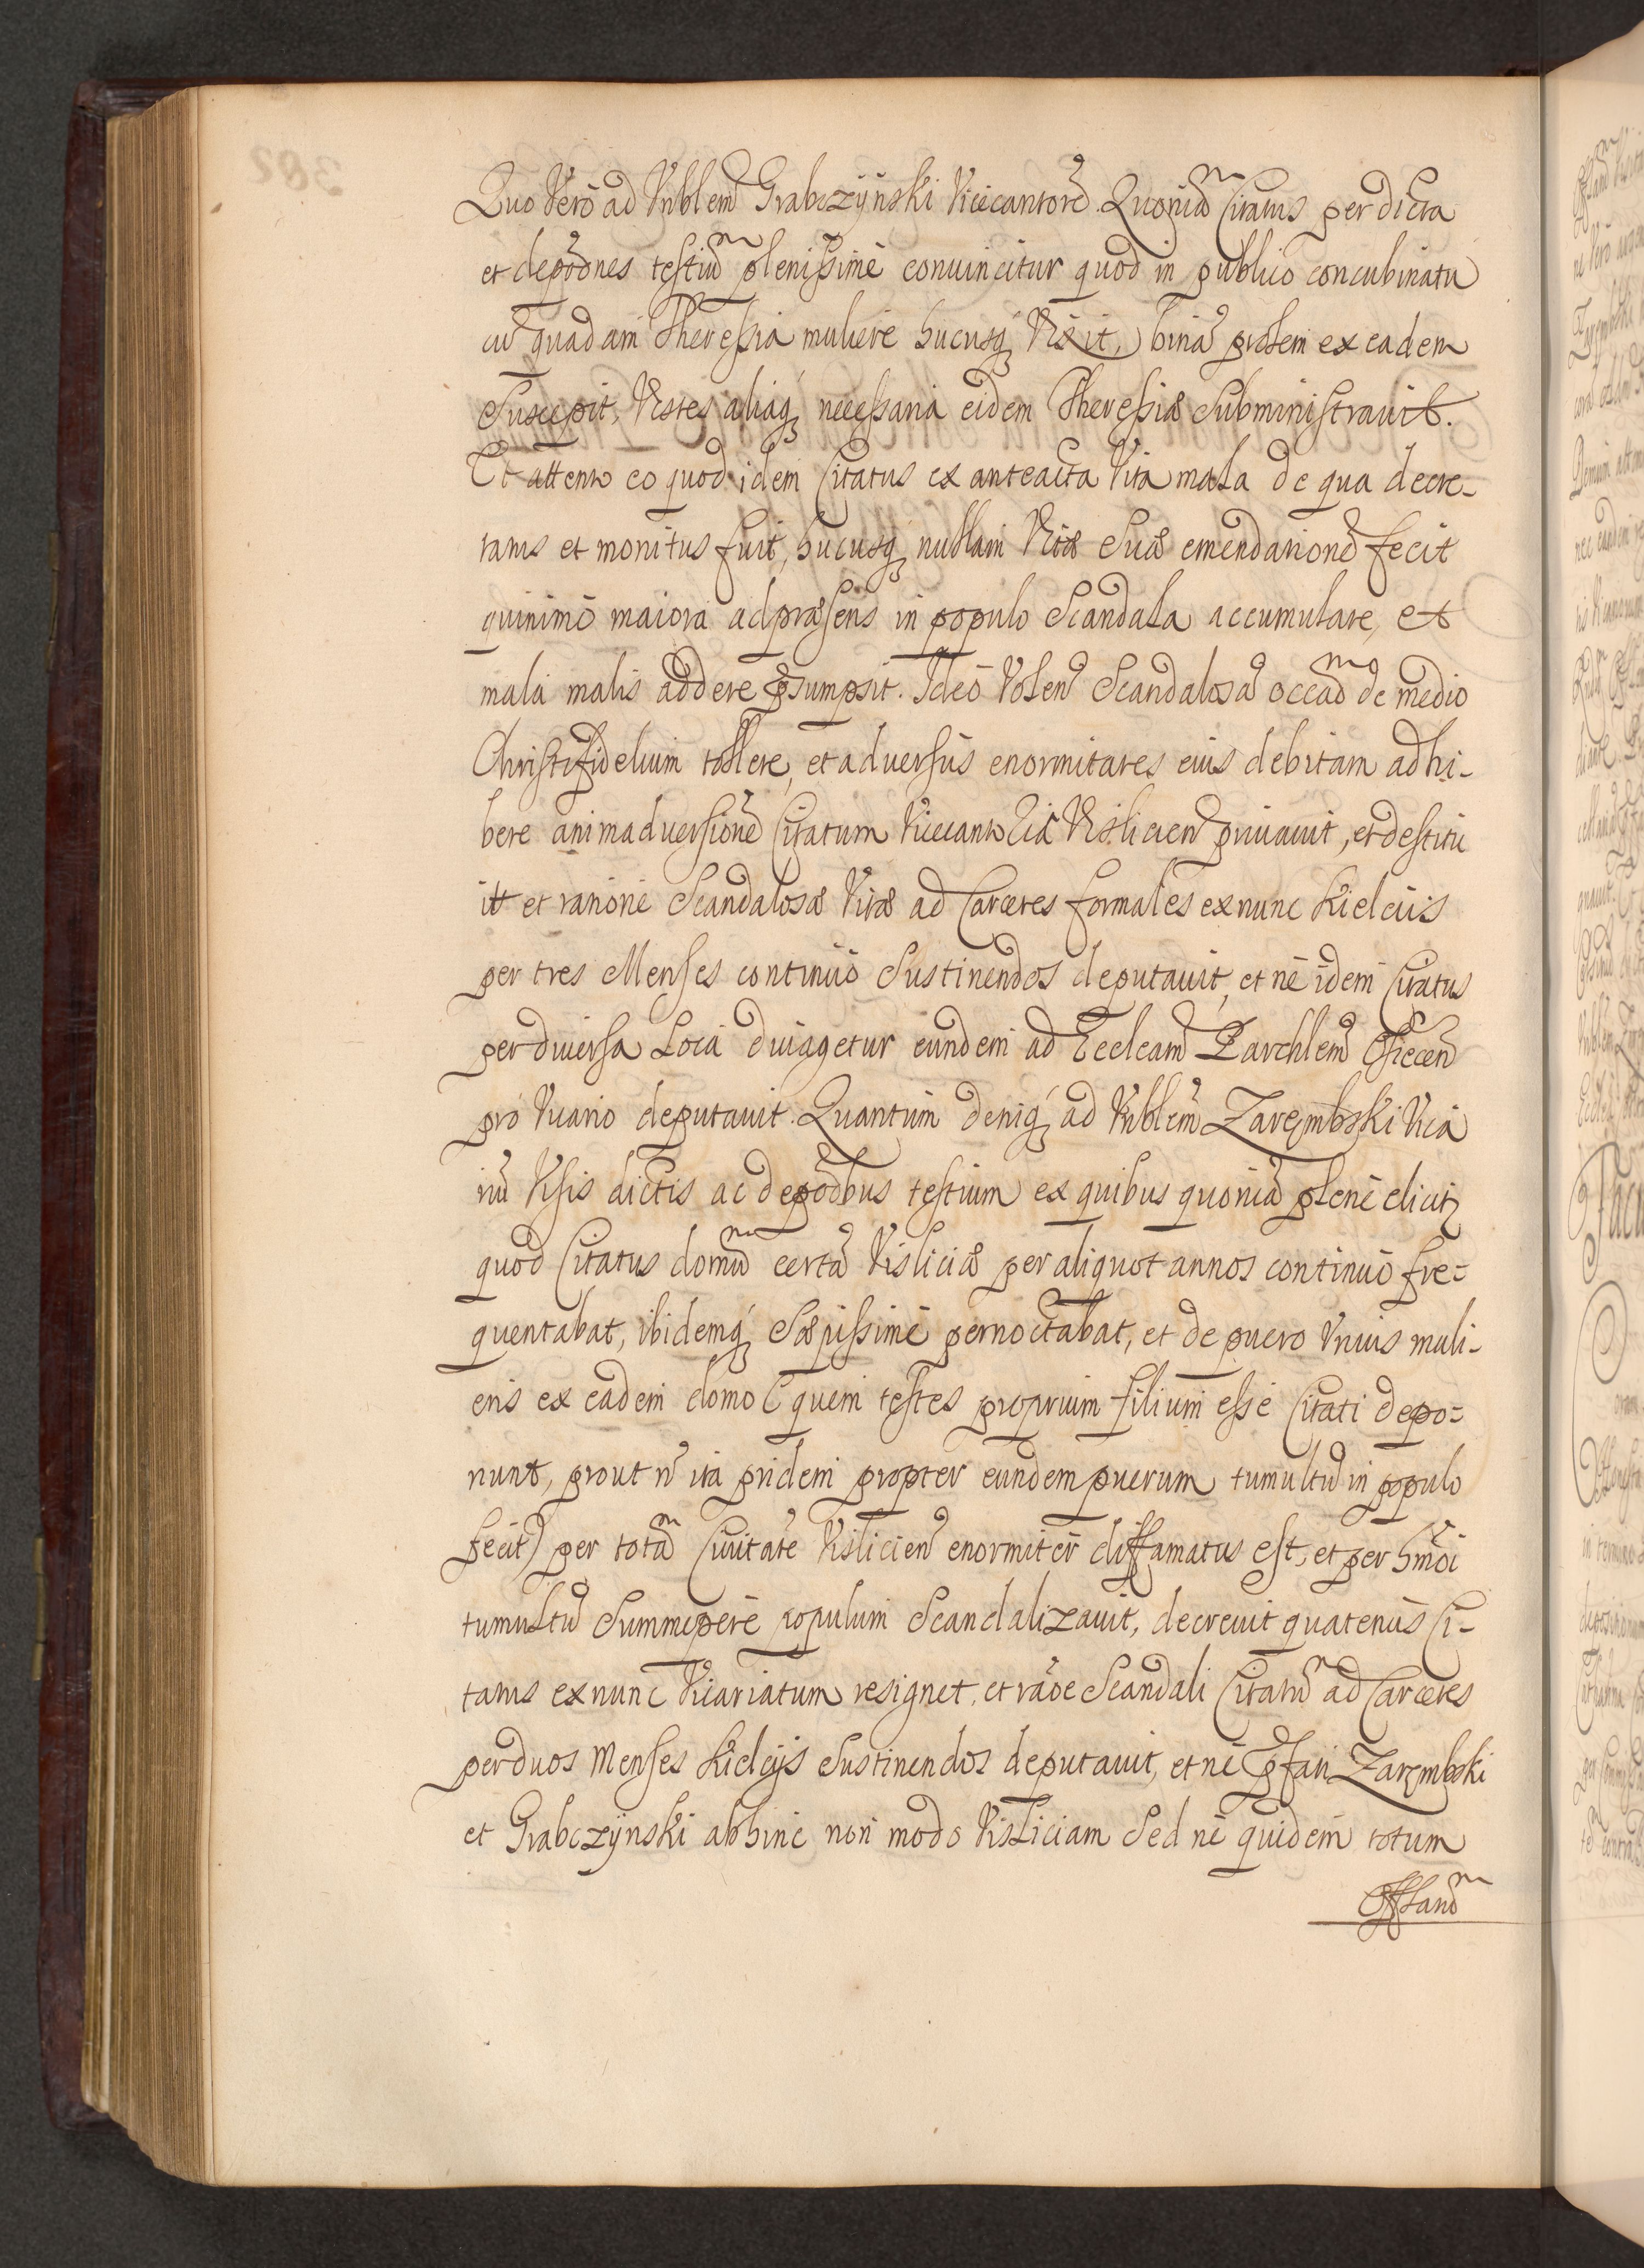 Quo Vero ad Vnblem̃ Grabczÿnski Vicecantorẽ Quoniã Citatus per dicta
et depõnes testiũ plenissimè conuincitur quod in publico concubinatu
cũ quadam Theressia muliere hucusq Vixit, binã prolem ex eadem
Suscepit, Vestes aliaq necessaria eidem Theressiæ Subministrauit.
Et attento eo quod idem Citatus ex anteacta Vita mala de qua decre-
tatus et monitus fuit, hucusq nullam Vitæ Suæ emendationẽ fecit
quinimò maiora ad præsens in populo Scandala accumulare, et
mala malis addere p̃sumpsit. Ideò Volen̄ Scandalosã occãõ de medio
Christifidelium tollere, et aduersùs enormitates eius debitam adhi-
bere animaduersionẽ Citatum Vicecantoriã Vislicien̄ priuauit, et destitu
it et ratione Scandalosæ Vitæ ad Carceres formales exnunc Kielciis
per tres Menses continuò Sustinendos deputauit, et nè idem Citatus
per diuersa Loca diuagetur eundem ad Eccleam̄ Parchlem̄ Ossiecen̄
pro Vicario deputauit. Quantùm deniq ad Vnblem̃ Zarembski Vica
riũ Visis dictis ac depõbus testium ex quibus quoniã plenè elicitꝛ
quod Citatus domũ certã Visliciæ per aliquot annos continuò fre-
quentabat, ibidemq Sæpissimè pernoctabat, et de puero Vnius muli-
eris ex eadem domo (quem testes proprium filium esse Citati depo-
nunt, prout ñ ita pridem propter eundem puerum tumultũ in populo
fecit) per totã Ciuitatẽ Vislicien̄ enormitèr diffamatus est, et per hmõi
tumultũ Summopere populum Scandalizauit, decreuit quatenùs Ci-
tatus exnunc Vicariatum resignet, et rãõe Scandali Citatũ ad Carceres
per duos Menses Kielcijs Sustinendos deputauit, et nè p̃fati Zarembski
et Grabczÿnski abhinc non modo Visliciam Sed nè quidem totum
Offlanð